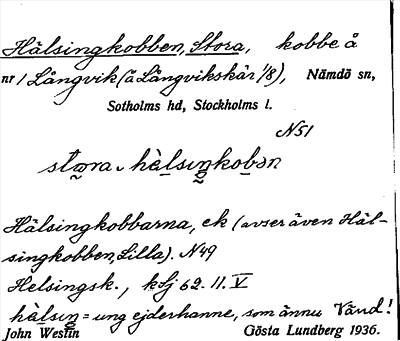 Hälsingkobben, Stora, kobbe å
nr 1 Långvik (å Långvikskär 1/8), Nämdö sn,
Sotholms hd, Stockholms l.
N51
Hälsingkobbarna, ek (avser även Häl-
singkobben, Lilla). N49
Helsingsk., ksj 62. 11. V
= ung ejderhanne, som ännu Vänd!
John Westin Gösta Lundberg 1936.